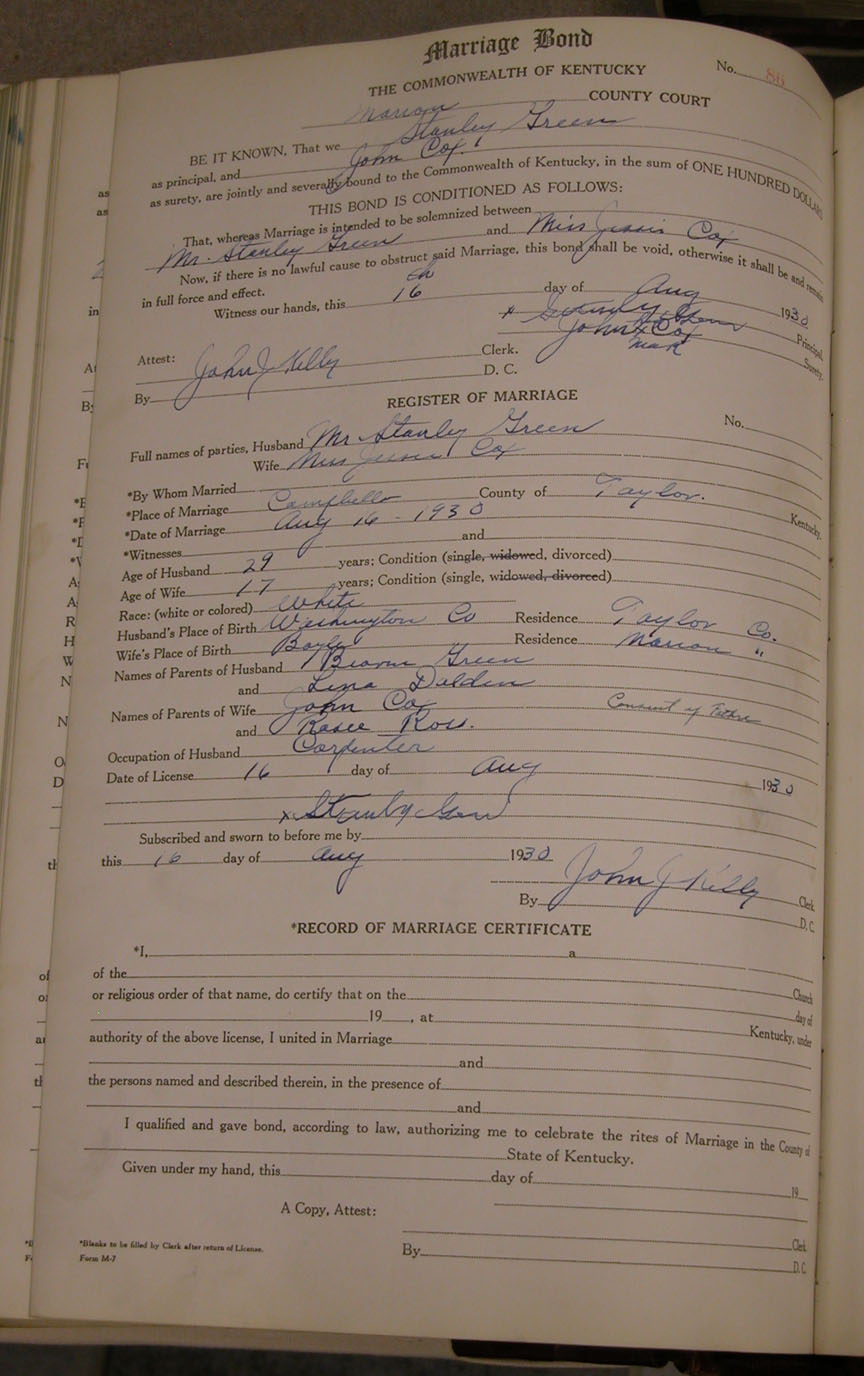 Marriage Bond
No. 86
THE COMMONWEALTH OF KENTUCKY
Marion COUNTY COURT
BE IT KNOWN, That we Stanley Green
as principal, and John Cox
as surety, are jointly and severally bound to the Commonwealth of Kentucky, in the sum of ONE HUNDRED DOLLARS
THIS BOND IS CONDITIONED AS FOLLOWS:
That, whereas Marriage is intended to be solemnized between
Mr. Stanley Green and Miss Jessie Cox
Now, if there is no lawful cause to obstruct said Marriage, this bond shall be void, otherwise it shall be and remain
in full force and effect.
Witness our hands, this 16 th day of Aug 1930
x Stanley Green Principal.
John x Cox Surety.
mark
Attest: John J Kelly Clerk.
By D. C.
REGISTER OF MARRIAGE
No.
Full names of parties, Husband Mr Stanley Green
Wife Miss Jessie Cox
*By Whom Married
*Place of Marriage County of Taylor. Kentucky.
*Date of Marriage Aug 16 - 1930
*Witnesses and
Age of Husband 29 years; Condition (single, widowed, divorced)
Age of Wife 17 years; Condition (single, widowed, divorced)
Race: (white or colored) White
Husband's Place of Birth Washington Co Residence Taylor Co.
Wife's Place of Birth Boyle Residence Marion "
Names of Parents of Husband Green
and Lena
Names of Parents of Wife John Cox Consent of Father
and Rosee Ross.
Occupation of Husband Carpenter
Date of License 16 day of Aug 1930
x Stanley Green
Subscribed and sworn to before me by
this 16 day of Aug 1930
John J Kelly Clerk
By D. C.
*RECORD OF MARRIAGE CERTIFICATE
*I, a
of the Church
or religious order of that name, do certify that on the day of
19 , at Kentucky, under
authority of the above license, I united in Marriage
and
the persons named and described therein, in the presence of
and
I qualified and gave bond, according to law, authorizing me to celebrate the rites of Marriage in the County of
State of Kentucky.
Given under my hand, this day of 19
A Copy, Attest:
Clerk
By D. C.
*Blanks to be filled by Clerk after return of License.
Form M-7